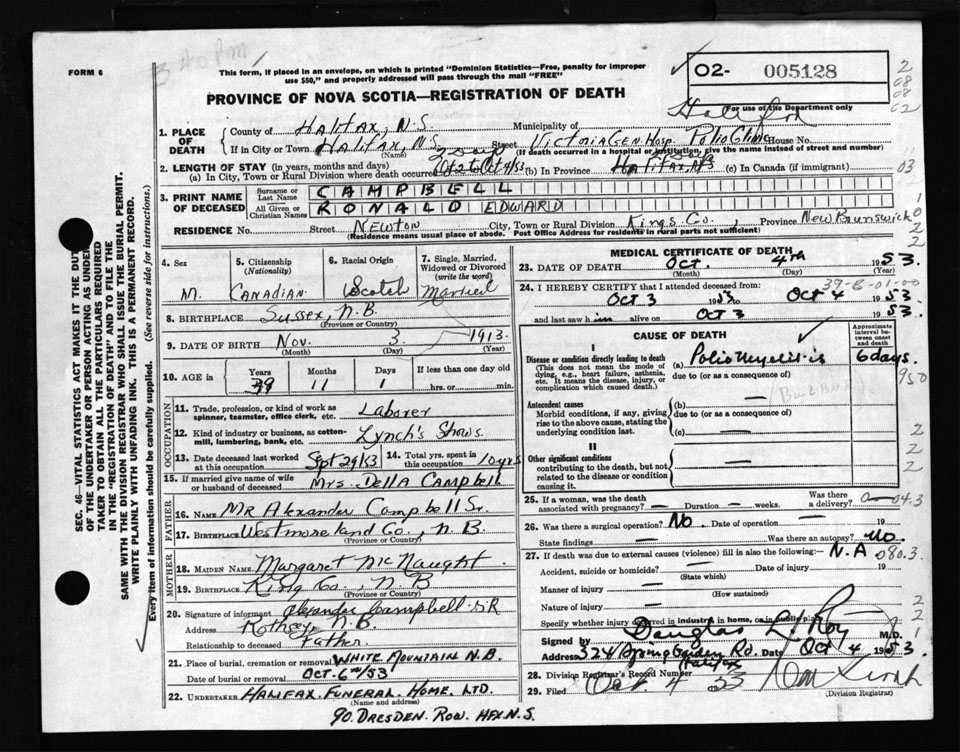 3 40 PM
FORM 6
This form, if placed in an envelope, on which is printed "Dominion Statistics—Free, penalty for improper
use $50," and properly addressed will pass through the mail "FREE"
PROVINCE OF NOVA SCOTIA—REGISTRATION OF DEATH
02- 005128
For use of the Department only
Halifax
1. PLACE OF DEATH
County of Halifax, N.S. Municipality of
If in City or Town Halifax, N.S. Street Victoria Gen. Hosp. Polio Clinic House No.
(Name) (If death occurred in a hospital or institution, give the name instead of street and number)
2. LENGTH OF STAY (in years, months and days)
(a) In City, Town or Rural Division where death occurred (b) In Province (c) In Canada (if immigrant)
3. PRINT NAME OF DECEASED
Surname or Last Name CAMPBELL
All Given or Christian Names RONALD EDWARD
RESIDENCE No. Street Newton City, Town or Rural Division Kings Co. Province New Brunswick
(Residence means usual place of abode. Post Office Address for residents in rural parts not sufficient)
4. Sex M.
5. Citizenship (Nationality) Canadian
6. Racial Origin Scotch
7. Single, Married, Widowed or Divorced (write the word) Married
8. BIRTHPLACE Sussex, N.B.
(Province or Country)
9. DATE OF BIRTH Nov. 3 1913.
(Month) (Day) (Year)
10. AGE in Years 39 Months 11 Days 1 If less than one day
hrs. or min.
OCCUPATION
11. Trade, profession, or kind of work as spinner, teamster, office clerk, etc. Laborer
12. Kind of industry or business, as cotton-mill, lumbering, bank, etc. Lynch's Shows
13. Date deceased last worked at this occupation Spt 29/53
14. Total yrs. spent in this occupation 10 yrs
15. If married give name of wife or husband of deceased Mrs. Della Campbell
FATHER
16. NAME Mr Alexander Campbell Sr.
17. BIRTHPLACE Westmoreland Co., N.B.
(Province or Country)
MOTHER
18. MAIDEN NAME Margaret McNaught
19. BIRTHPLACE King Co., N.B
(Province or Country)
20. Signature of informant Alexander Campbell SR
Address Rothesy, N.B.
Relationship to deceased Father.
21. Place of burial, cremation or removal White Mountain N.B.
Date of burial or removal Oct. 6th/53
22. UNDERTAKER Halifax Funeral Home, Ltd.
(Name and address)
90. Dresden. Row. Hfx N.S.
MEDICAL CERTIFICATE OF DEATH
23. DATE OF DEATH Oct. 4th 1953.
(Month) (Day) (Year)
24. I HEREBY CERTIFY that I attended deceased from:
39-B-01-00
Oct 3 1953 to Oct 4 1953.
and last saw him alive on Oct 3 1953.
CAUSE OF DEATH
Approximate interval between onset and death
I
Disease or condition directly leading to death
(This does not mean the mode of dying, e.g., heart failure, asthenia, etc. It means the disease, injury, or complication which caused death.)
(a) Poliomyelitis 6 days.
due to (or as a consequence of)
Antecedent causes
Morbid conditions, if any, giving rise to the above cause, stating the underlying condition last.
(b) —
due to (or as a consequence of)
(c) —
II
Other significant conditions
contributing to the death, but not related to the disease or condition causing it.
25. If a woman, was the death associated with pregnancy? — Duration — weeks. Was there a delivery?
26. Was there a surgical operation? No. Date of operation — 19
State findings — Was there an autopsy? No.
27. If death was due to external causes (violence) fill in also the following:— N.A
Accident, suicide or homicide? — Date of injury 19
(State which)
Manner of injury —
(How sustained)
Nature of injury —
Specify whether injury occurred in industry, in home, or in public place
Signed by Douglas L. Roy M.D.
Address 324 Spring Garden Rd. Halifax Date Oct 4 1953.
28. Division Registrar's Record Number
29. Filed Oct 4 53
(Division Registrar)
SEC. 46—VITAL STATISTICS ACT MAKES IT THE DUTY
OF THE UNDERTAKER OR PERSON ACTING AS UNDERTAKER
TO OBTAIN ALL THE PARTICULARS REQUIRED
IN THE "REGISTRATION OF DEATH" AND TO FILE THE
SAME WITH THE DIVISION REGISTRAR WHO SHALL ISSUE THE BURIAL PERMIT.
WRITE PLAINLY WITH UNFADING INK. THIS IS A PERMANENT RECORD.
Every item of information should be carefully supplied. (See reverse side for instructions.)